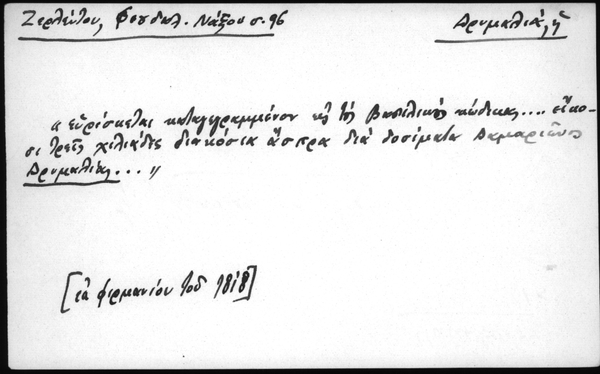 Ζερλέντου, Φεουδαλ. Νάξου σ. 96
Δρυμαλιά, ἡ
« εὑρίσκεται καταγεγραμμένον εἰς τὴς Βασιλικὸς κώδικας.... εἴκο-
σι τρεῖς χιλιάδες διακόσια ἄσπρα διὰ δοσίματα Δαμαριῶνος
Δρυμαλίας... »
[ἐκ φιρμανίου τοῦ 1818]